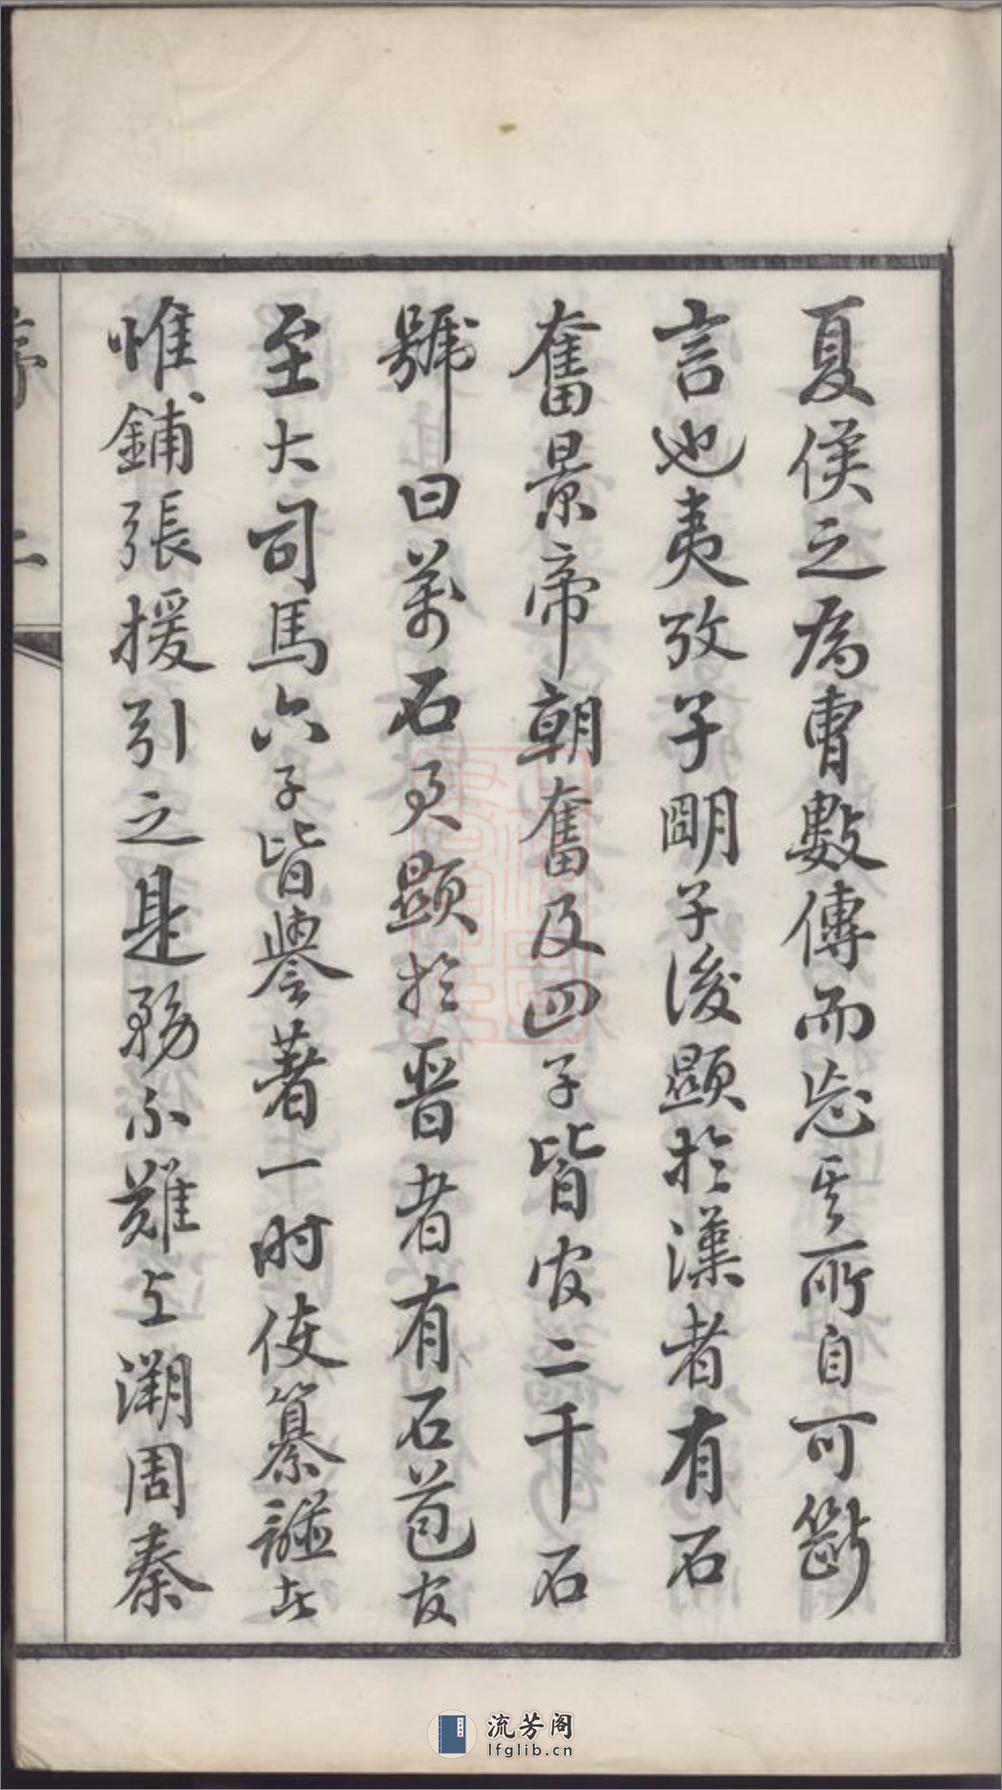 夏侯之為曹數傳而忘其所自可斷
言也夷攷子明子後顯於漢者有石
奮景帝朝奮及四子皆官二千石
號曰萬石君顯於晉者有石苞官
至大司馬六子皆譽著一时使纂譜者
惟鋪張援引之是務不難上溯周秦
序
二
流芳阁
lfglib.cn